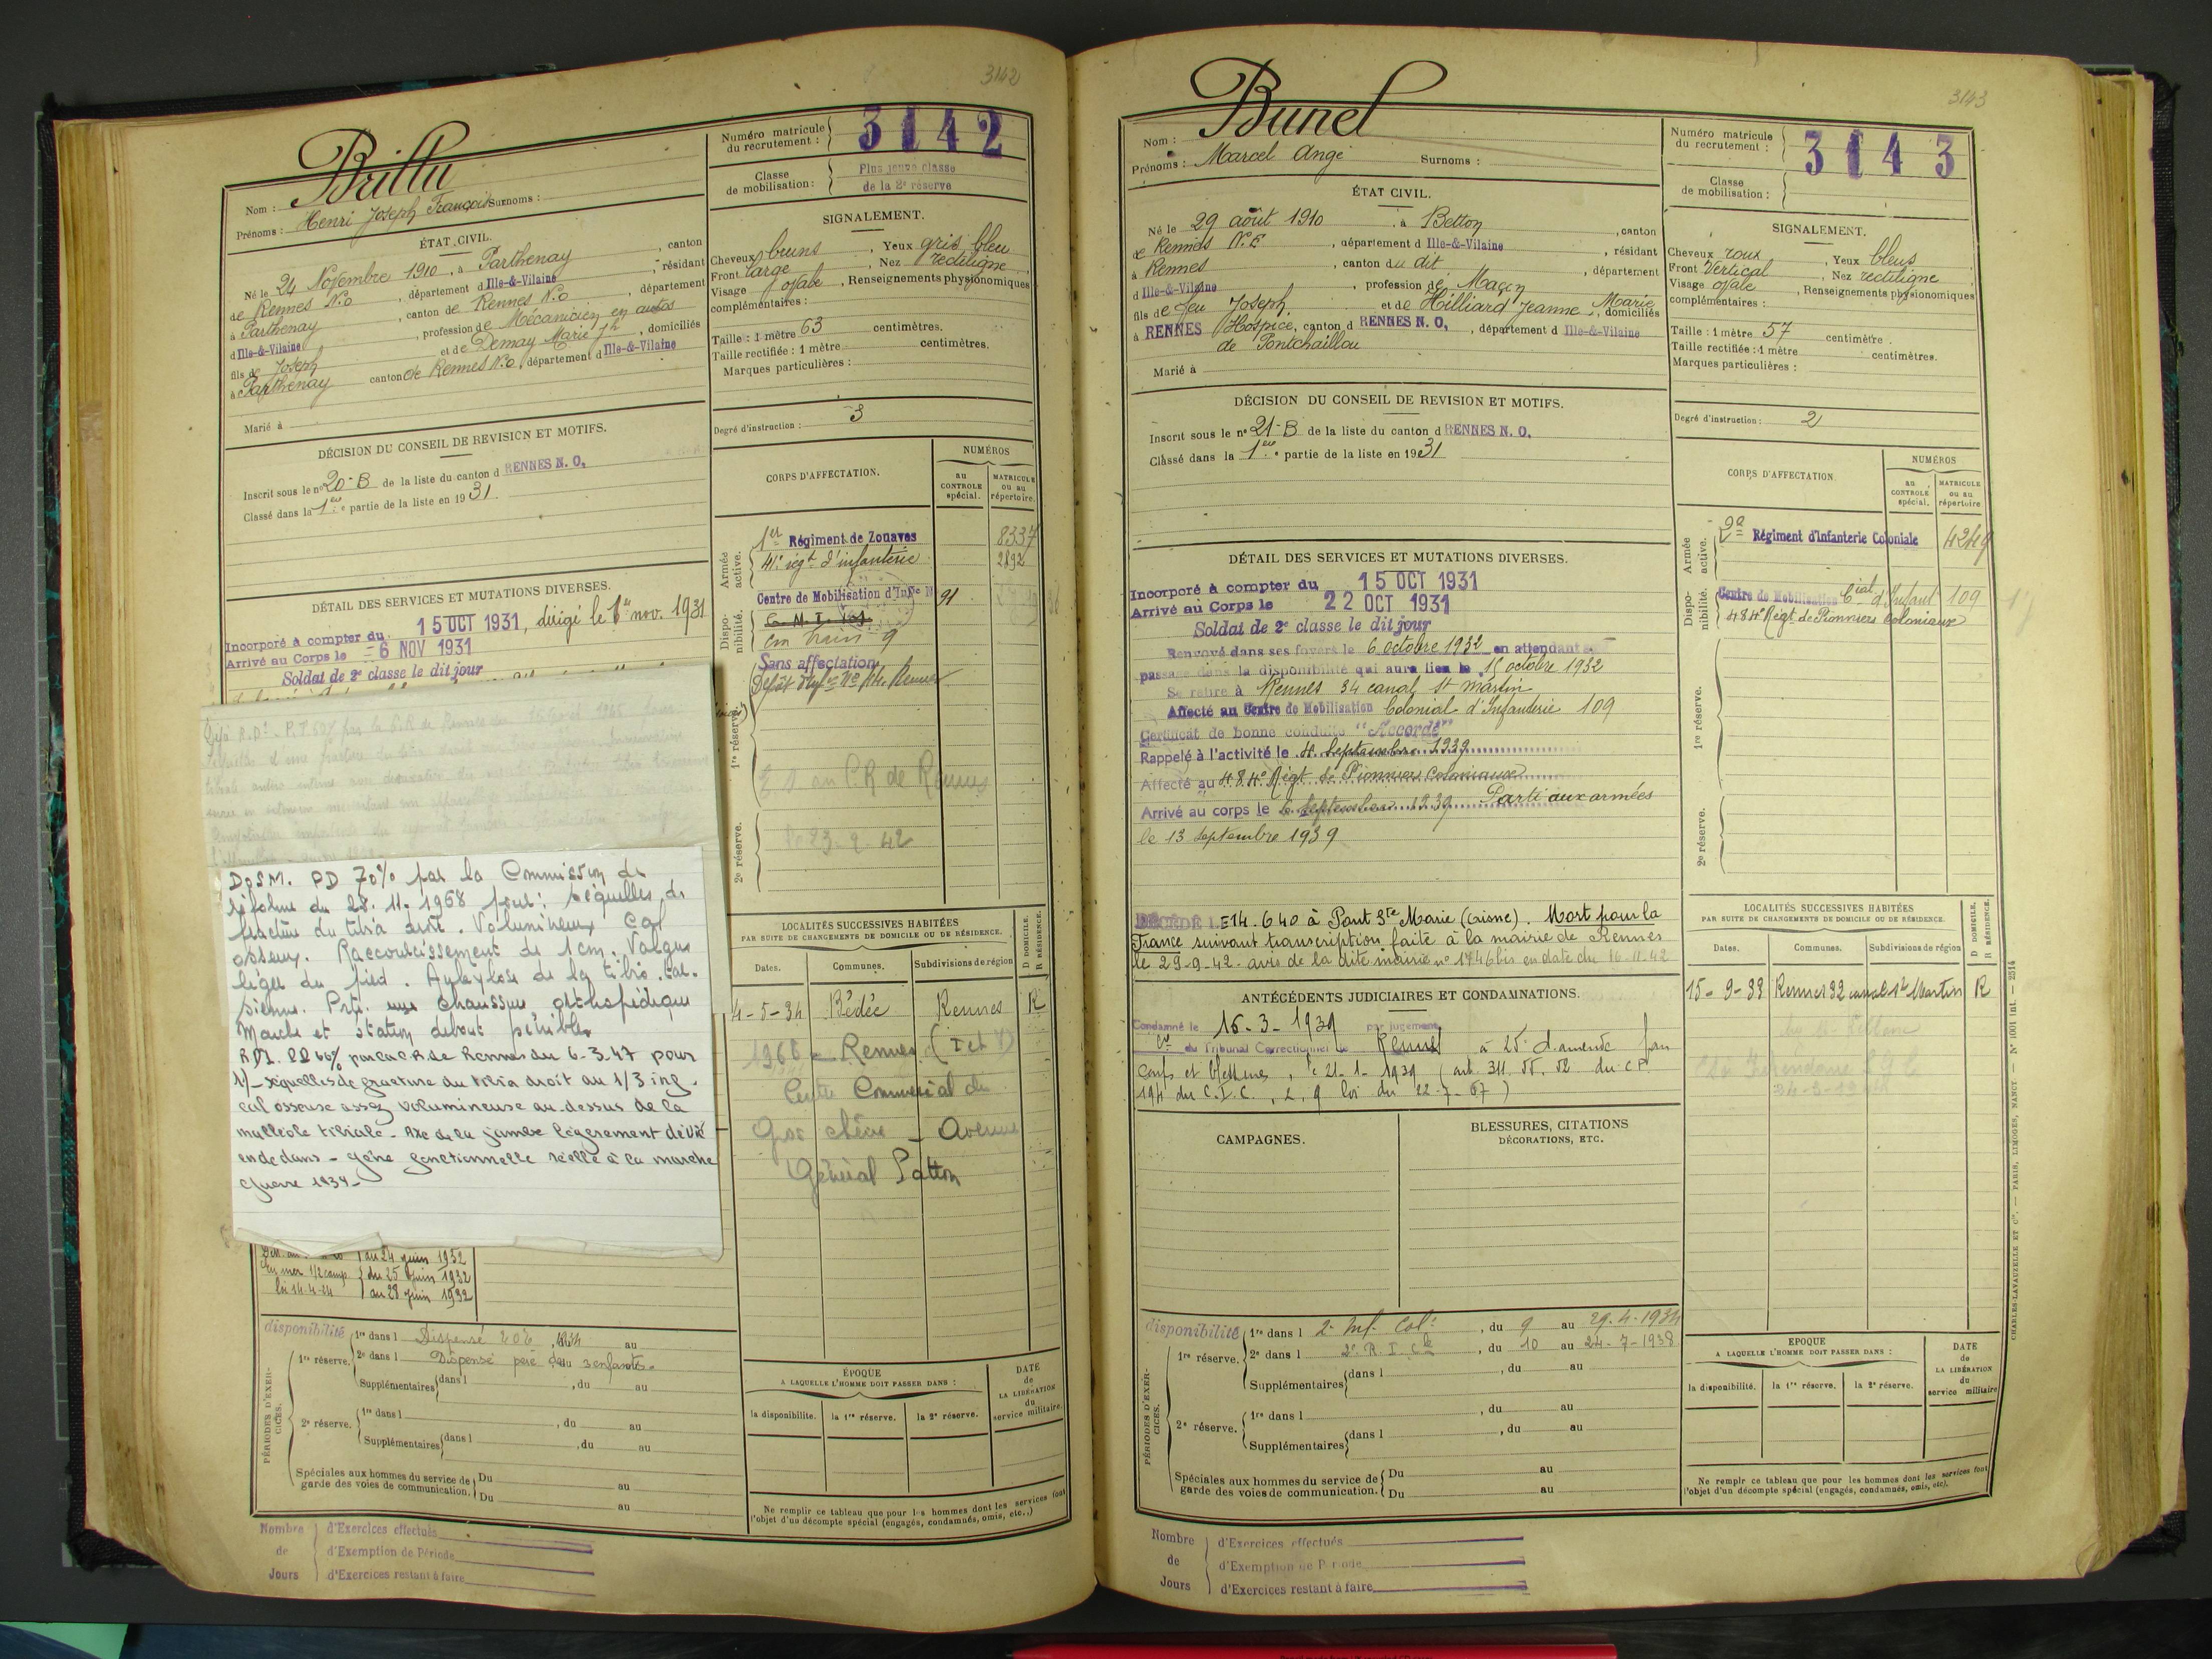 3142
Brillu
Nom :
Prénoms : Henri Joseph François Surnoms :
ÉTAT CIVIL.
Né le 24 Novembre 1910, à Parthenay, canton
de Rennes N.O, département d Ille-&-Vilaine, résidant
à Parthenay, canton de Rennes N.O, département
d Ille-&-Vilaine, profession de Mécanicien en autos
fils de Joseph et de Demay Marie Jh, domiciliés
à Parthenay canton de Rennes N.O, département d Ille-&-Vilaine
Marié à
DÉCISION DU CONSEIL DE REVISION ET MOTIFS.
Inscrit sous le n° 20-B de la liste du canton d RENNES N. O.
Classé dans la 1ère partie de la liste en 1931.
DÉTAIL DES SERVICES ET MUTATIONS DIVERSES.
Incorporé à compter du 15 OCT 1931, dirigé le 1er nov. 1931
Arrivé au Corps le - 6 NOV 1931
Soldat de 2e classe le dit jour
DOSM. PD 70% par la Commission de
réforme du 28. 11. 1968 pour : séquelles de
fracture du tibia droit. Volumineux cal
osseux. Raccourcissement de 1 cm. Valgus
léger du pied. Ankylose de la tibio. tar-
sienne. Port. une chaussure orthopédique
Marche et station debout pénibles
RDI. PD 60% par la C.R de Rennes du 6-3-47 pour
1/- séquelles de fracture du tibia droit au 1/3 inf.
cal osseuse assez volumineuse au-dessus de la
malléole tibiale - Axe de la jambe légèrement dévié
en dedans - gêne fonctionnelle réelle à la marche
Guerre 1939-
au 24 juin 1932
En mer 1/2 camp. du 25 juin 1932
loi 14-4-24 au 28 juin 1932
disponibilité
PÉRIODES D'EXERCICES.
1re réserve. 1re dans l Dispensé au
2e dans l Dispensé père de 3 enfants.
Supplémentaires dans l , du au
2e réserve. 1re dans l , du au
Supplémentaires dans l , du au
Spéciales aux hommes du service de garde des voies de communication. Du au
Du au
Nombre de Jours
d'Exercices effectués
d'Exemption de Période
d'Exercices restant à faire
Numéro matricule du recrutement : 3142
Classe de mobilisation : Plus jeune classe
de la 2e réserve
SIGNALEMENT.
Cheveux bruns, Yeux gris bleu
Front large, Nez rectiligne
Visage ovale, Renseignements physionomiques
complémentaires :
Taille : 1 mètre 63 centimètres.
Taille rectifiée : 1 mètre centimètres.
Marques particulières :
Degré d'instruction : 3
CORPS D'AFFECTATION.
NUMÉROS
au CONTROLE spécial.
MATRICULE ou au répertoire.
Armée active.
1er Régiment de Zouaves 8337
41e régt d'infanterie 2892
Disponibilité.
Centre de Mobilisation d'Inf. N 91
C. M. I.
Sans affectation
1re réserve.
2e réserve.
23-9-42
LOCALITÉS SUCCESSIVES HABITÉES
PAR SUITE DE CHANGEMENTS DE DOMICILE OU DE RÉSIDENCE.
D DOMICILE. R RÉSIDENCE.
Dates. Communes. Subdivisions de région
4-5-34 Bédée Rennes R
Rennes (I et V)
Centre Commercial du
Gros chêne - Avenue
Général Patton
ÉPOQUE
A LAQUELLE L'HOMME DOIT PASSER DANS :
la disponibilité. la 1re réserve. la 2e réserve.
DATE de LA LIBÉRATION du service militaire.
Ne remplir ce tableau que pour les hommes dont les services font
l'objet d'un décompte spécial (engagés, condamnés, omis, etc..)
3143
Bunel
Nom :
Prénoms : Marcel Ange Surnoms :
ÉTAT CIVIL.
Né le 29 août 1910 à Betton, canton
de Rennes N.E, département d Ille-&-Vilaine, résidant
à Rennes, canton du dit, département
d Ille-&-Vilaine, profession de Maçon
fils de feu Joseph et de Hilliard Jeanne Marie, domiciliés
à RENNES Hospice, canton d RENNES N. O., département d Ille-&-Vilaine
de Pontchaillou
Marié à
DÉCISION DU CONSEIL DE REVISION ET MOTIFS.
Inscrit sous le n° 21-B de la liste du canton d RENNES N. O.
Classé dans la 1ère partie de la liste en 1931
DÉTAIL DES SERVICES ET MUTATIONS DIVERSES.
Incorporé à compter du 15 OCT 1931
Arrivé au Corps le 22 OCT 1931
Soldat de 2e classe le dit jour
Renvoyé dans ses foyers le 6 octobre 1932 en attendant
passage dans la disponibilité qui aura lieu le 15 octobre 1932
Se retire à Rennes 34 canal St Martin
Affecté au Centre de Mobilisation Colonial d'Infanterie 109
Certificat de bonne conduite "Accordé"
Rappelé à l'activité le 4 Septembre 1939
Affecté au 484e Régt de Pionniers Coloniaux
Arrivé au corps le 6 Septembre 1939 Parti aux armées
le 13 septembre 1939
DÉCÉDÉ LE 14.6.40 à Pont Ste Marie (Aisne). Mort pour la
France suivant transcription faite à la mairie de Rennes
le 29-9-42. avis de la dite mairie n° 1746 bis en date du 16-11-42
ANTÉCÉDENTS JUDICIAIRES ET CONDAMNATIONS.
Condamné le 16-3-1939 par jugement
du Tribunal Correctionnel de Rennes à 25f d'amende pour
coups et blessures, le 21-1-1939 (art. 311, 55, 52 du C.P.
194 du C.I.C., 2, 9 loi du 22-7-67)
CAMPAGNES.
BLESSURES, CITATIONS
DÉCORATIONS, ETC.
disponibilité
PÉRIODES D'EXERCICES.
1re réserve. 1re dans l 2e Inf. Colle, du 9 au 29-4-1934
2e dans l 2e R. I. Cle, du 10 au 24-7-1938
Supplémentaires dans l , du au
2e réserve. 1re dans l , du au
Supplémentaires dans l , du au
Spéciales aux hommes du service de garde des voies de communication. Du au
Du au
Nombre de Jours
d'Exercices effectués
d'Exemption de Période
d'Exercices restant à faire
Numéro matricule du recrutement : 3143
Classe de mobilisation :
SIGNALEMENT.
Cheveux roux, Yeux bleus
Front Vertical, Nez rectiligne
Visage ovale, Renseignements physionomiques
complémentaires :
Taille : 1 mètre 57 centimètre.
Taille rectifiée : 1 mètre centimètres.
Marques particulières :
Degré d'instruction : 2
CORPS D'AFFECTATION
NUMÉROS
au CONTROLE spécial.
MATRICULE ou au répertoire
Armée active.
2e Régiment d'Infanterie Coloniale 4249
Disponibilité.
Centre de Mobilisation Cial d'Infant 109
484e Régt de Pionniers Coloniaux
1re réserve.
2e réserve.
LOCALITÉS SUCCESSIVES HABITÉES
PAR SUITE DE CHANGEMENTS DE DOMICILE OU DE RÉSIDENCE.
D DOMICILE. R RÉSIDENCE.
Dates. Communes. Subdivisions de région
15-9-33 Rennes 32 canal St Martin R
ÉPOQUE
A LAQUELLE L'HOMME DOIT PASSER DANS :
la disponibilité. la 1re réserve. la 2e réserve.
DATE de LA LIBÉRATION du service militaire
Ne remplir ce tableau que pour les hommes dont les services font
l'objet d'un décompte spécial (engagés, condamnés, omis, etc).
CHARLES-LAVAUZELLE ET Cie. — PARIS, LIMOGES, NANCY — N° 1001 int. — 2514